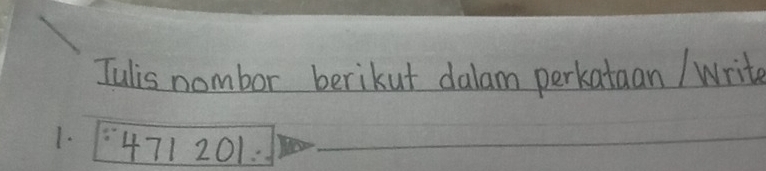 Tulis nombor berikut dalam perkataan / Write
1. 471 201